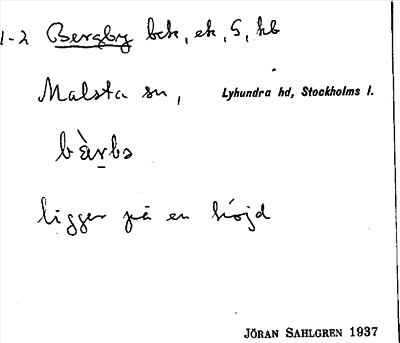 1-2 Bergby bek, ek, S, hb
Malsta sn, Lyhundra hd, Stockholms l.
bàrbə
ligger på en höjd
JÖRAN SAHLGREN 1937